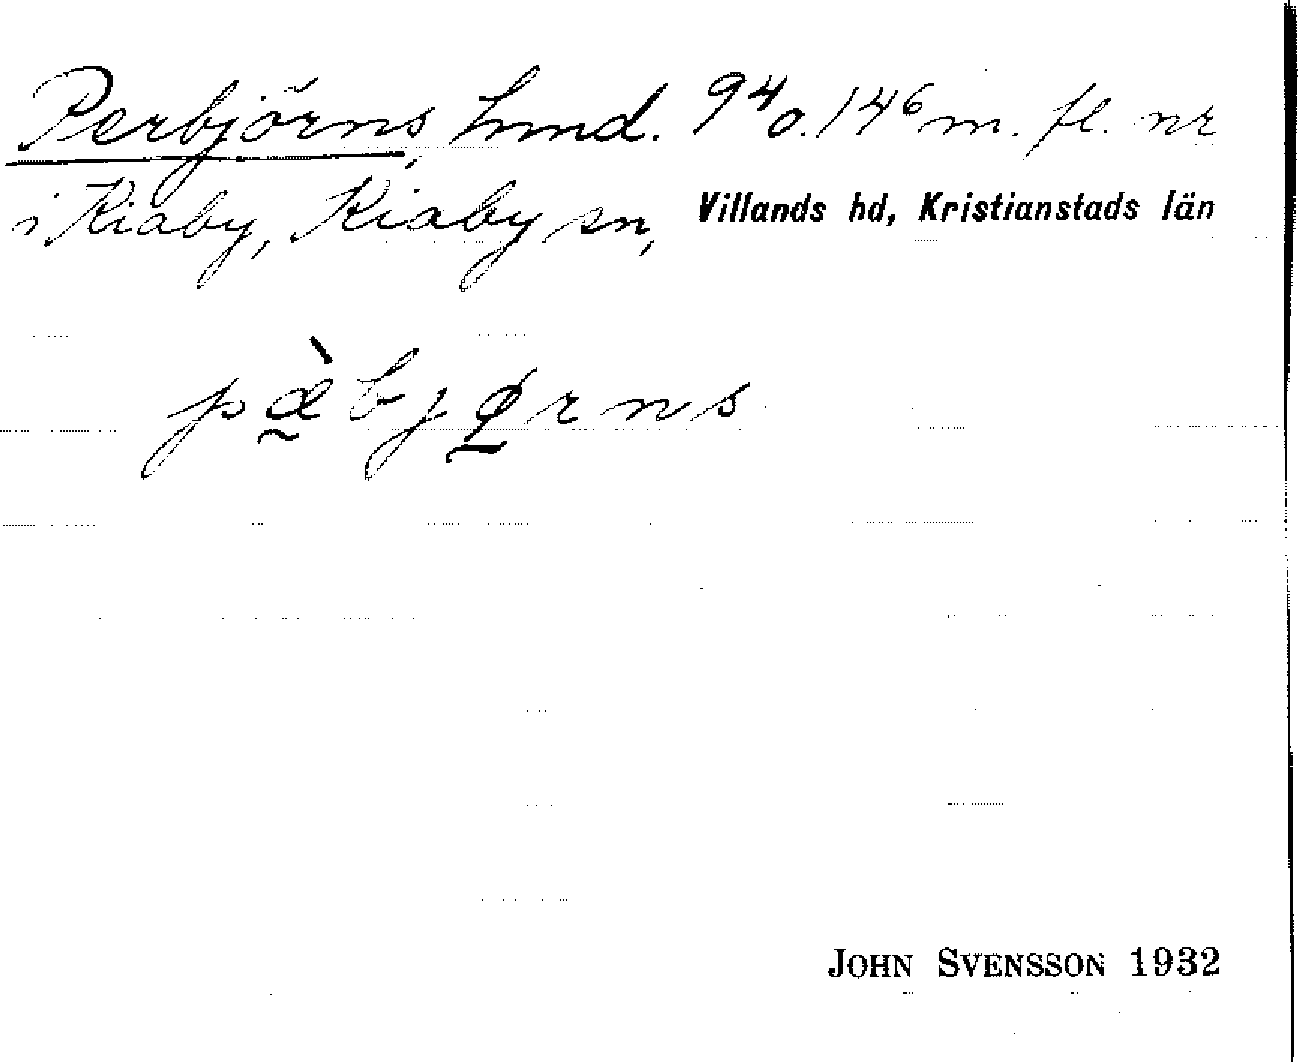 Perbjörns, hmd. 9⁴ o. 14⁶ m. fl. nr
i Kiaby, Kiaby sn, Villands hd, Kristianstads län
pæ̠̀bjø̠rns
JOHN SVENSSON 1932